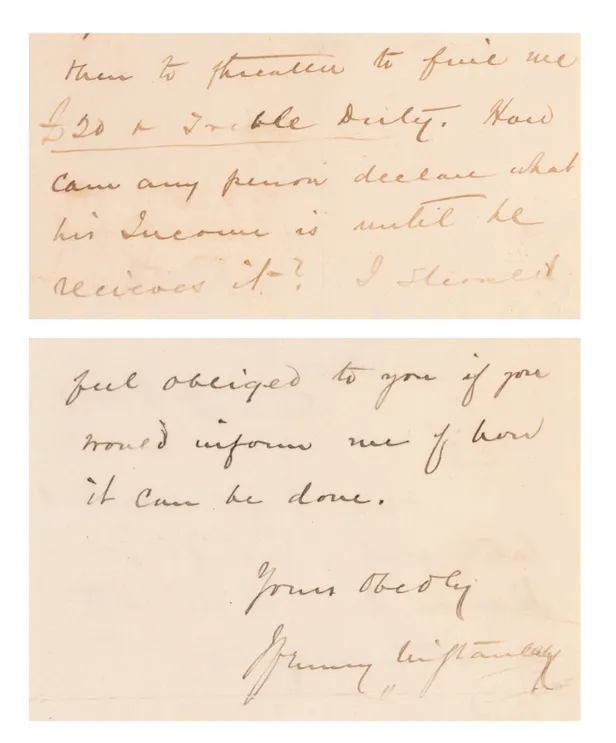 then to threaten to fine me
£20 & Treble Duty. How
can any person declare what
his Income is until he
recieves it? I should
feel obliged to you if you
would inform me of how
it can be done.
Yours Obedly
Henry Winstanley